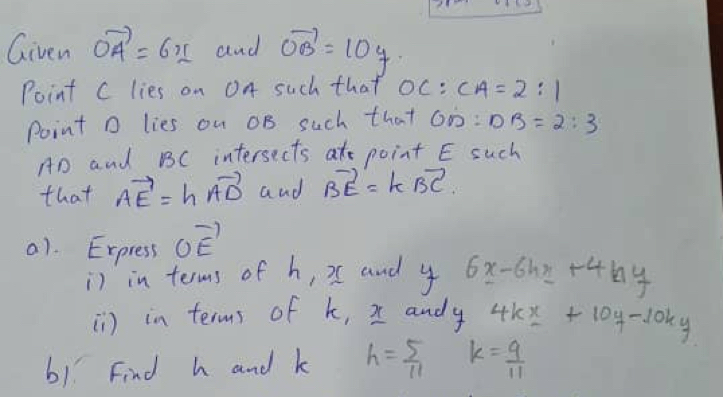 Given OA = 6x and OB = 10y.
Point C lies on OA such that OC : CA = 2 : 1
Point D lies on OB such that OD : DB = 2 : 3
AD and BC intersects at point E such
that AE = h AD and BE = k BC.
a). Express OE
i) in terms of h, x and y 6x - 6hx + 4hy
ii) in terms of k, x and y 4kx + 10y - 10ky
b). Find h and k h = 5/11 k = 9/11